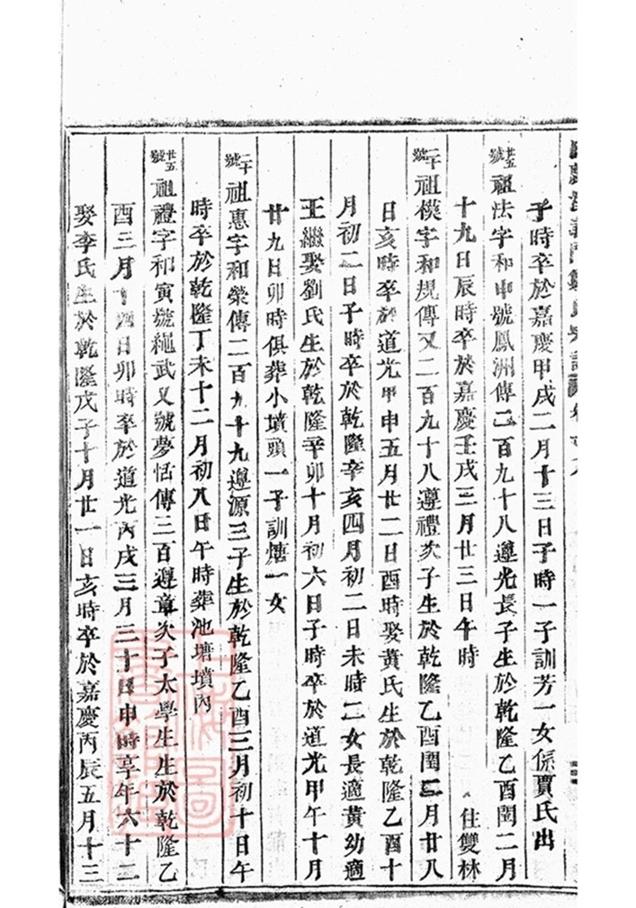 子時卒於嘉慶甲戌二月十三日子時一子訓芳一女係賈氏出
廿五號祖法字和申號鳳洲傳二百九十八遵光長子生於乾隆乙酉閏二月
十九日辰時卒於嘉慶壬戌三月廿三日午時 住雙林
二十號祖模字和規傳又二百九十八遵禮次子生於乾隆乙酉閏二月廿八
日亥時卒於道光甲申五月廿二日酉時娶黃氏生於乾隆乙酉十
月初二日子時卒於乾隆辛亥四月初二日未時二女長適黃幼適
王繼娶劉氏生於乾隆辛卯十月初六日子時卒於道光甲午十月
廿九日卯時俱葬小墳頭一子訓𤏡一女
二十號祖惠字和榮傳二百九十九遵源三子生於乾隆乙酉三月初十日午
時卒於乾隆丁未十二月初八日午時葬池塘墳內
廿五號祖禮字和寅號繩武又號夢恬傳三百遵章次子太學生生於乾隆乙
酉三月十四日卯時卒於道光丙戌三月三十日申時享年六十二
娶李氏生於乾隆戊子十月廿一日亥時卒於嘉慶丙辰五月十三